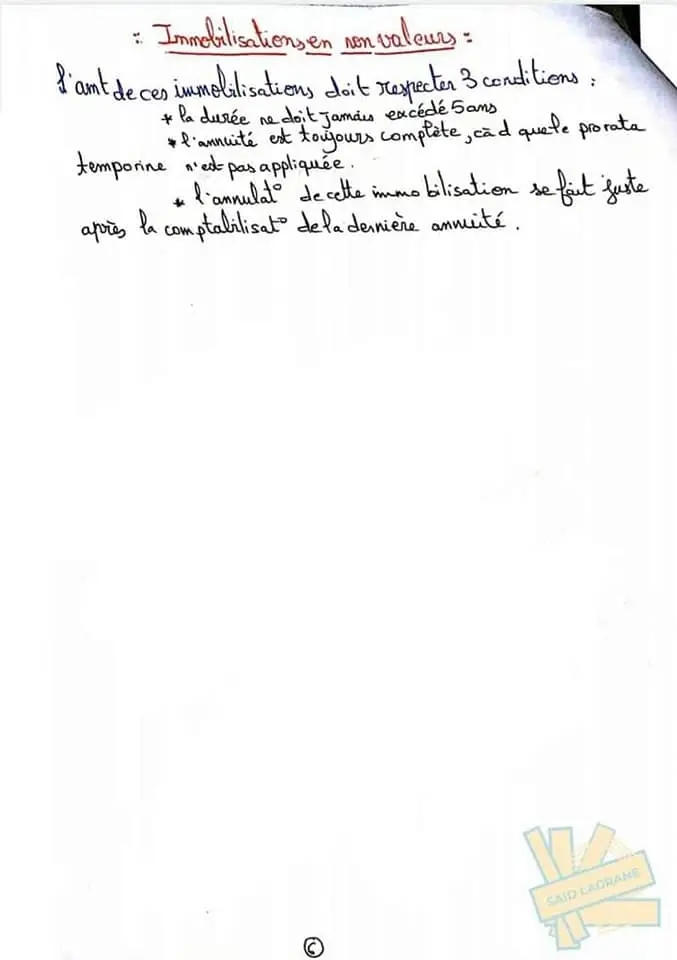 :: Immobilisations en non valeurs ::
L'amt de ces immobilisations doit respecter 3 conditions :
* la durée ne doit jamais excédé 5 ans
* l'annuité est toujours complète, càd que le prorata
temporine n'est pas appliquée.
* l'annulat° de cette immobilisation se fait juste
après la comptabilisat° de la dernière annuité.
SAID LAGRANE